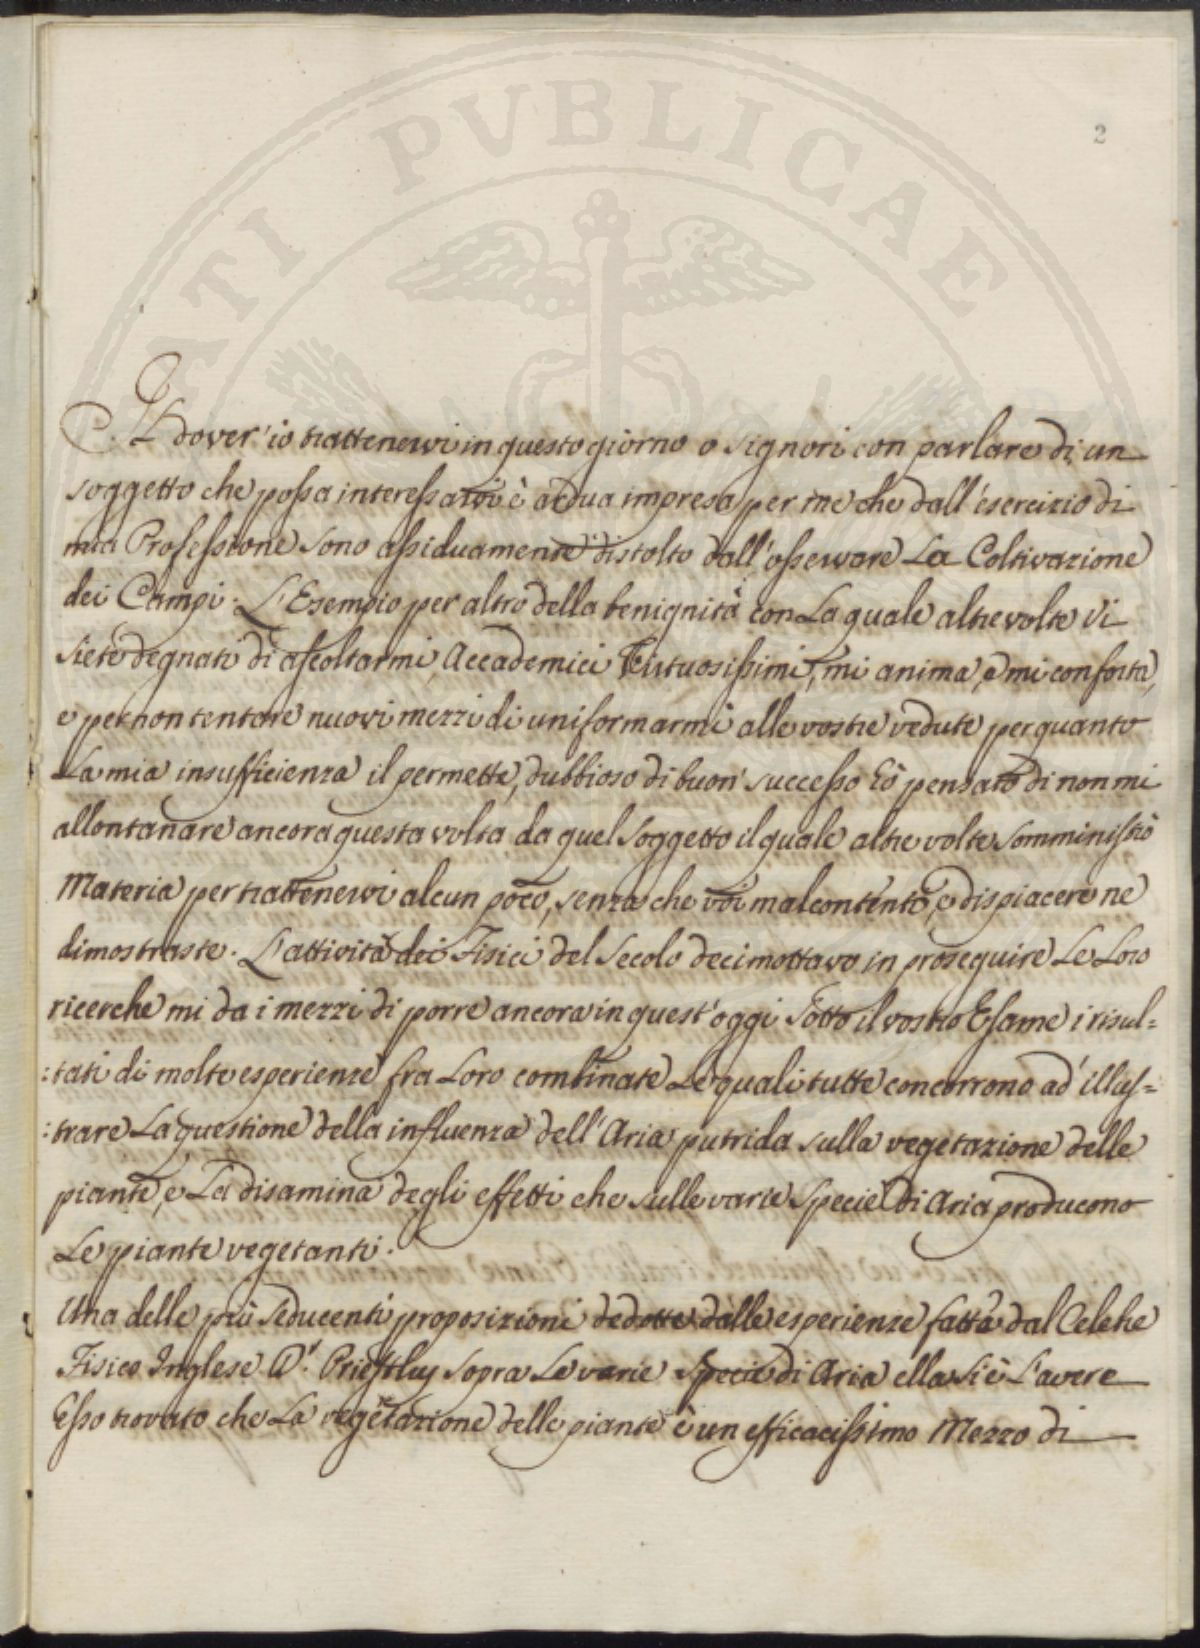 2
Il dover' io trattenervi in questo giorno o Signori con parlare di un
soggetto che possa interessarvi è ardua impresa per me che dall'esercizio di
mia Professione sono assiduamente distolto dall'osservare La Coltivazione
dei Campi. L'Esempio per altro della benignità con La quale altre volte Vi
siete degnati di ascoltarmi Accademici Virtuosissimi, mi anima, e mi conforta,
e per non tentare nuovi mezzi di uniformarmi alle vostre vedute per quanto
La mia insufficienza il permette, dubbioso di buon' successo hò pensato di non mi
allontanare ancora questa volta da quel soggetto il quale altre volte somministrò
Materia per trattenervi alcun poco, senza che voi malcontento, e dispiacere ne
dimostraste. L'attività dei Fisici del Secolo decimottavo in proseguire Le Loro
ricerche mi da i mezzi di porre ancora in quest'oggi Sotto il vostro Esame i risul=
:tati di molte esperienze fra Loro combinate Le quali tutte concorrono ad' illus=
:trare La questione della influenza dell'Aria putrida sulla vegetazione delle
piante, e La disamina degli effetti che sulle varie Specie di Aria producono
Le piante vegetanti.
Una delle più Seducenti proposizioni dedotte dalle esperienze fatte dal Celebre
Fisico Inglese D.r Priestley sopra Le varie Specie di Aria ella si è L'avere
Esso trovato che La vegetazione delle piante è un efficacissimo Mezzo di
PUBLICAE